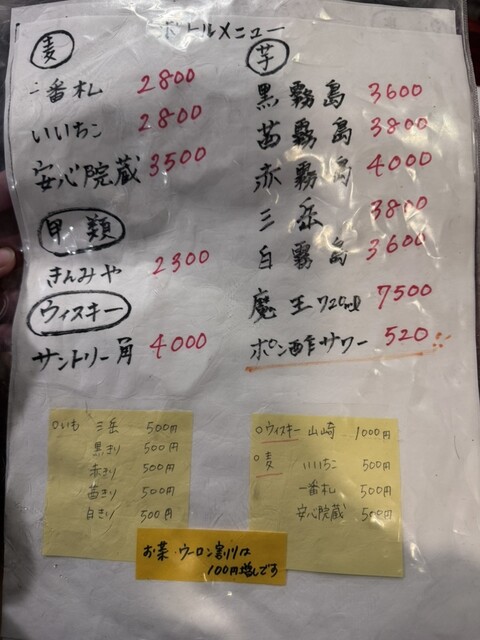 ボトルメニュー
麦
一番札 2800
いいちこ 2800
安心院蔵 3500
甲類
きんみや 2300
ウィスキー
サントリー角 4000
芋
黒霧島 3600
茜霧島 3800
赤霧島 4000
三岳 3800
白霧島 3600
魔王720ml 7500
ポン酢サワー 520
○いも 三岳 500円
黒きり 500円
赤きり 500円
茜きり 500円
白きり 500円
○ウィスキー 山崎 1000円
○麦 いいちこ 500円
一番札 500円
安心院蔵 500円
お茶・ウーロン割りは
100円増しです